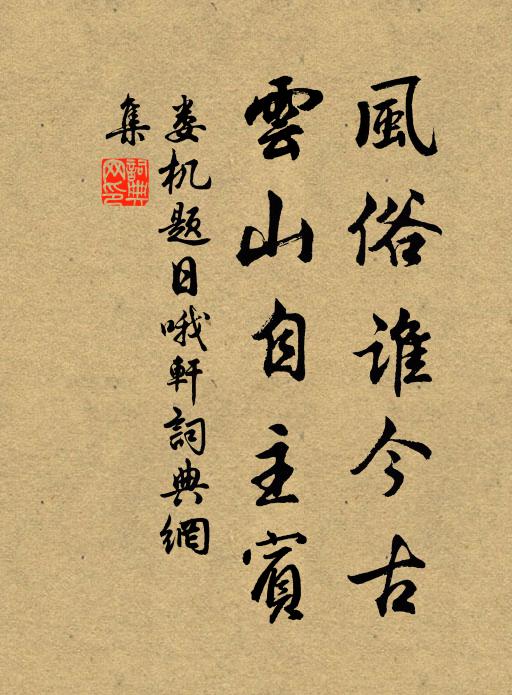 風俗誰今古
雲山自主賓
娄机题日哦軒詞典網
集
詞典
网印